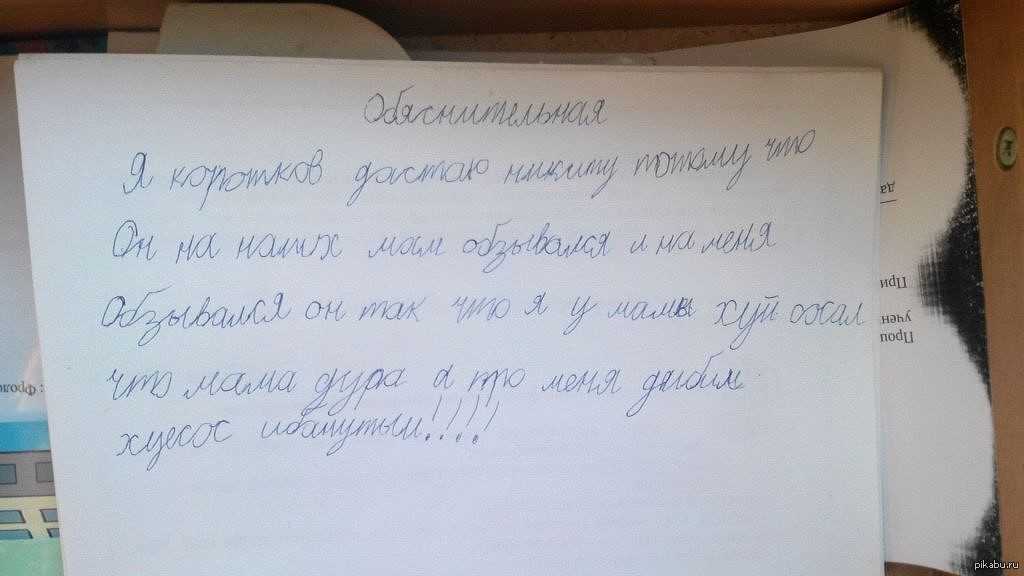 Обяснительная
Я коротков дастаю никиту потому что
Он на наших мам обзывался и на меня
Обзывался он так что я у мамы хуй сожал
что мама дура а про меня дыбил
хуесос ибанутый.!.!.!.!
да
При
учен
Прош
: Фроло
pikabu.ru